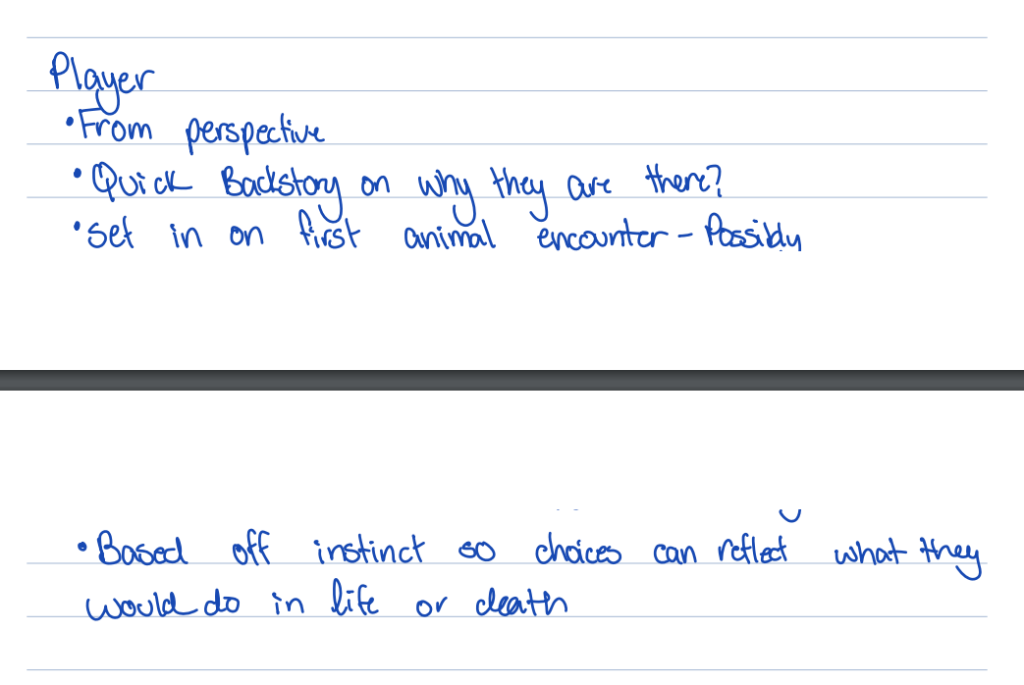 Player
• From perspective
• Quick Backstory on why they are there?
• set in on first animal encounter - Possibly
• Based off instinct so choices can reflect what they
would do in life or death